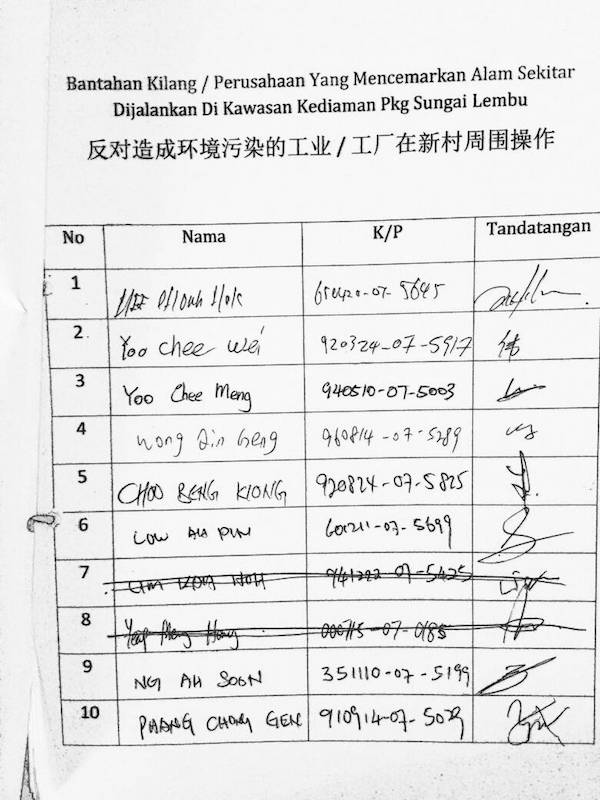 Bantahan Kilang / Perusahaan Yang Mencemarkan Alam Sekitar
Dijalankan Di Kawasan Kediaman Pkg Sungai Lembu
反对造成环境污染的工业 / 工厂在新村周围操作
No Nama K/P Tandatangan
1
2 Yoo chee wei 920324-07-5917 伟
3 Yoo Chee Meng 940510-07-5003
4 Wong 960814-07-5289
5 CHOO BENG KIONG 920824-07-5825
6 LOW AH 601211-07-5699
7
8
9 NG AH SOON 351110-07-5199
10 PHANG CHONG GEN 910914-07-5029